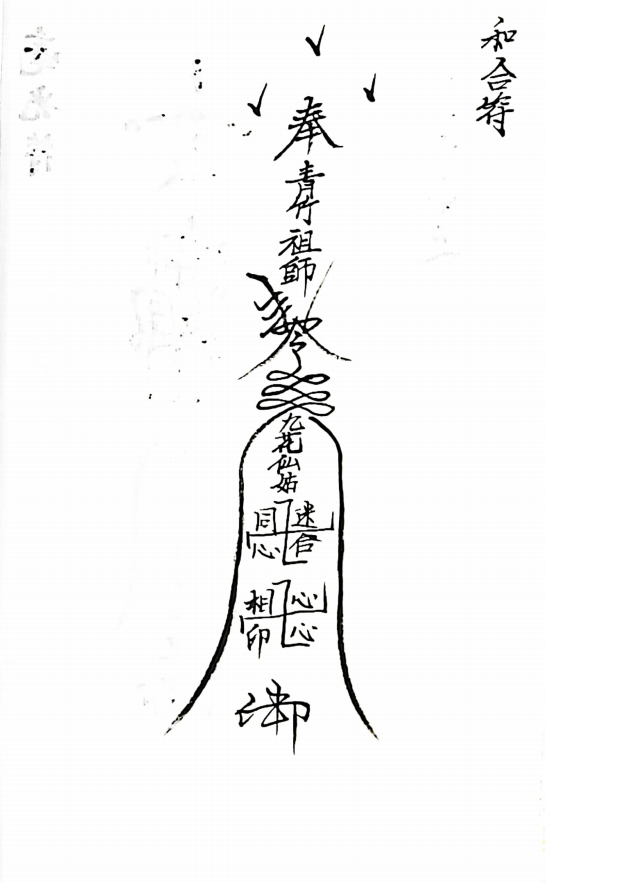 和合符
奉
青竹祖師
令
九花仙姑
同心 迷合
相印 心心